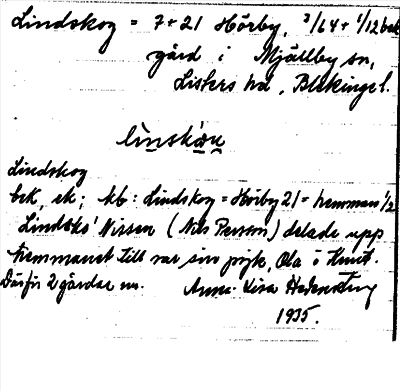 Lindskog = 7+21 Hörby, 3/64 + 1/12 bebr
gård i Mjällby sn,
Listers hd, Blekinge l.
linskåu
Lindskog
bek, ek; kb: Lindskog = Hörby 21 = hemman 1/2
Lindsks' Nissen (Nils Persson) delade upp
hemmanet till var sin pojk, Ola o Knut.
Därför 2 gårdar nu. Anna-Lisa
1935.